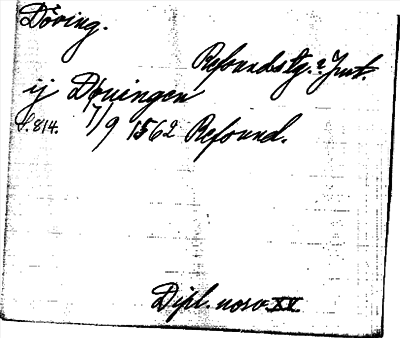 Döring.
Refsundstg. Jmt.
ij Döningen
S. 814. 7/9 1562 Refsund.
Dipl. norv XV